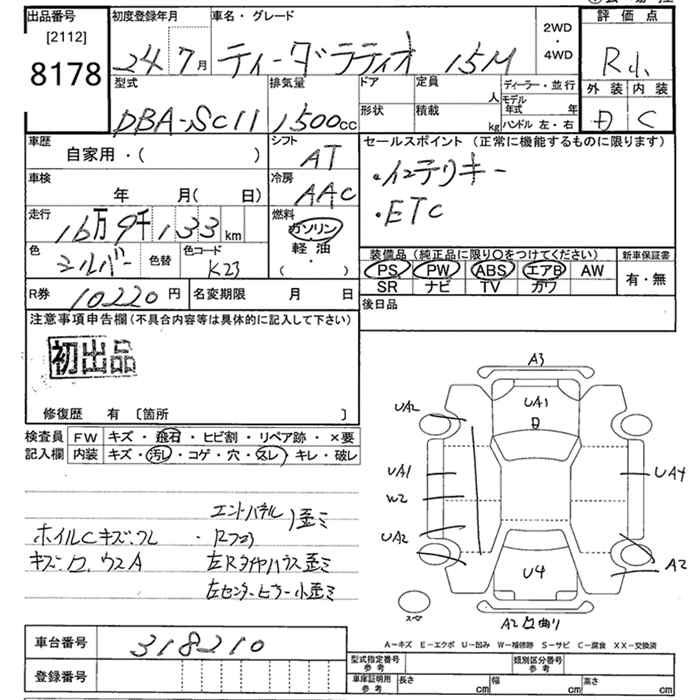 出品番号
[2112]
8178
初度登録年月
24年7月
車名・グレード
ティーダラティオ 15M
2WD
・
4WD
評価点
R小
外装 内装
D C
型式
DBA-SC11
排気量
1500cc
ドア
形状
定員
人
積載
kg
ディーラー・並行
モデル年式 年
ハンドル 左・右
車歴
自家用・( )
シフト
AT
セールスポイント (正常に機能するものに限ります)
・インテリキー
・ETC
車検
年 月( 日)
冷房
AAC
走行
16万9千133km
燃料
ガソリン
軽油
( ・ )
色
シルバー
色替
色コード
K23
装備品 (純正品に限り○をつけてください)
PS PW ABS エアB AW
SR ナビ TV カワ
新車保証書
有・無
R券 10220円
名変期限 月 日
後日品
注意事項申告欄(不具合内容等は具体的に記入して下さい)
初出品
修復歴 有 [箇所 ]
検査員
記入欄
FW キズ・飛石・ヒビ割・リペア跡・×要
内装 キズ・汚レ・コゲ・穴・スレ・キレ・破レ
ホイルCキズ・ワレ
エンドパネル 歪ミ
・Rフロア
左Rタイヤハウス歪ミ
左センターピラー小歪ミ
A3
UA2
UA1
D
UA1
W2
UA2
UA4
A2
U4
スペア
A2 凹曲り
A-キズ E-エクボ U-凹み W-補修跡 S-サビ C-腐食 XX-交換済
車台番号
318210
登録番号
型式指定番号
参考
類別区分番号
参考
車庫証明用
参考
長さ cm
幅 cm
高さ cm